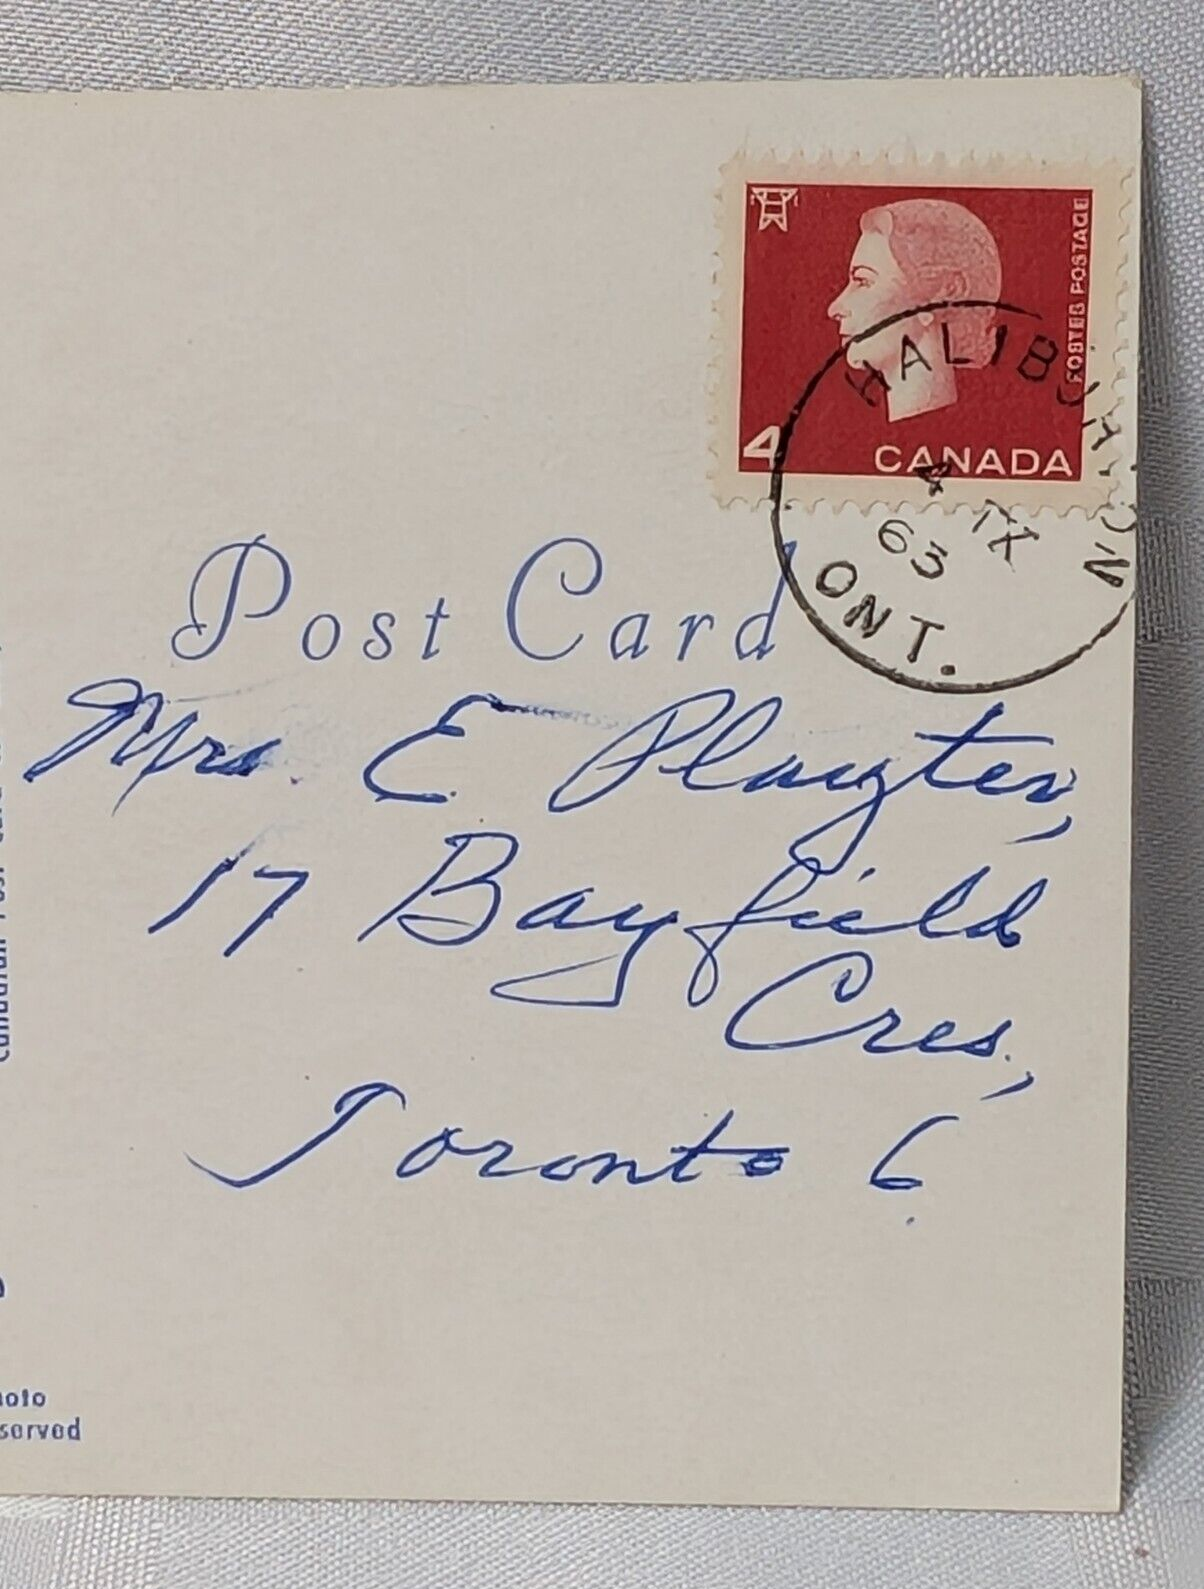 POSTES POSTAGE
4 CANADA
HALIBURTON
4 IX
63
ONT.
Post Card
Mrs. E Playter,
17 Bayfield
Cres.,
Toronto 6
served